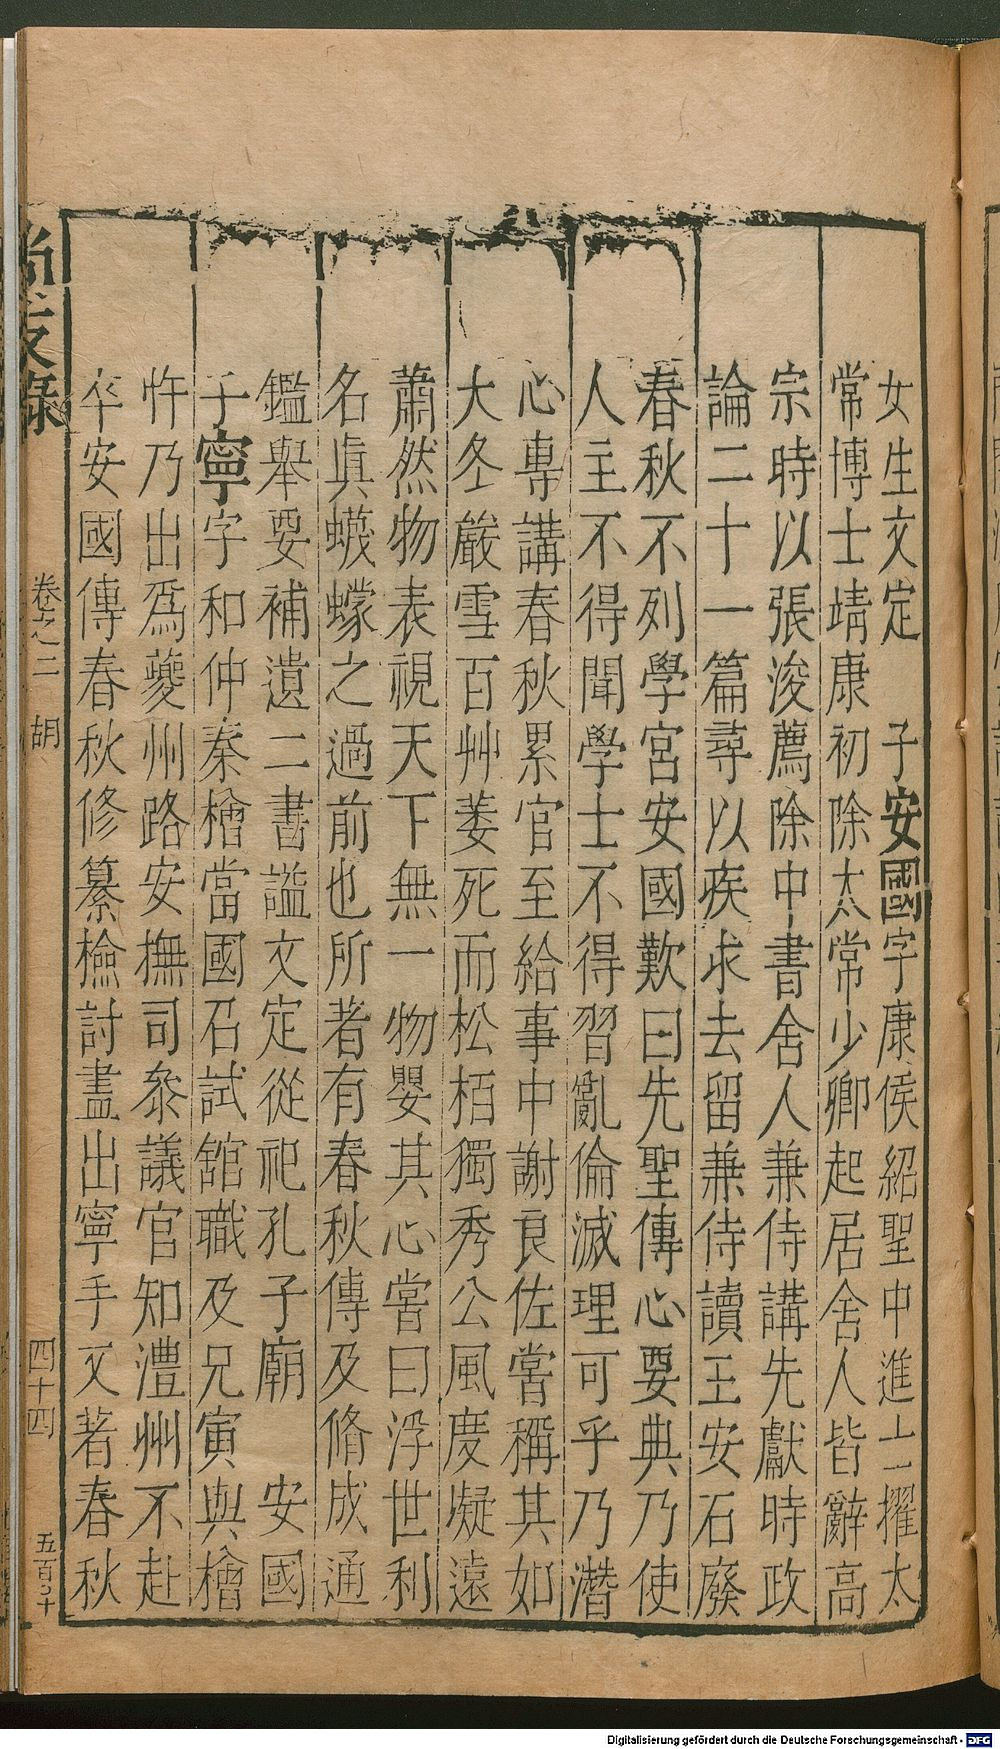 女生文定　子安國字康侯紹聖中進士擢太
常博士靖康初除太常少卿起居舍人皆辭高
宗時以張浚薦除中書舍人兼侍講先獻時政
論二十一篇尋以疾求去留兼侍讀王安石廢
春秋不列學宮安國歎曰先聖傳心要典乃使
人主不得聞學士不得習亂倫滅理可乎乃潛
心專講春秋累官至給事中謝良佐嘗稱其如
大冬嚴雪百艸萎死而松栢獨秀公風度凝遠
蕭然物表視天下無一物嬰其心嘗曰浮世利
名真蠛蠓之過前也所著有春秋傳及脩成通
鑑舉要補遺二書謚文定從祀孔子廟　安國
子寧字和仲秦檜當國召試舘職及兄寅與檜
忤乃出爲夔州路安撫司叅議官知澧州不赴
卒安國傳春秋修纂檢討盡出寧手又著春秋
尚友錄
卷之三　胡
四十四
五百彐十
Digitalisierung gefördert durch die Deutsche Forschungsgemeinschaft - DFG